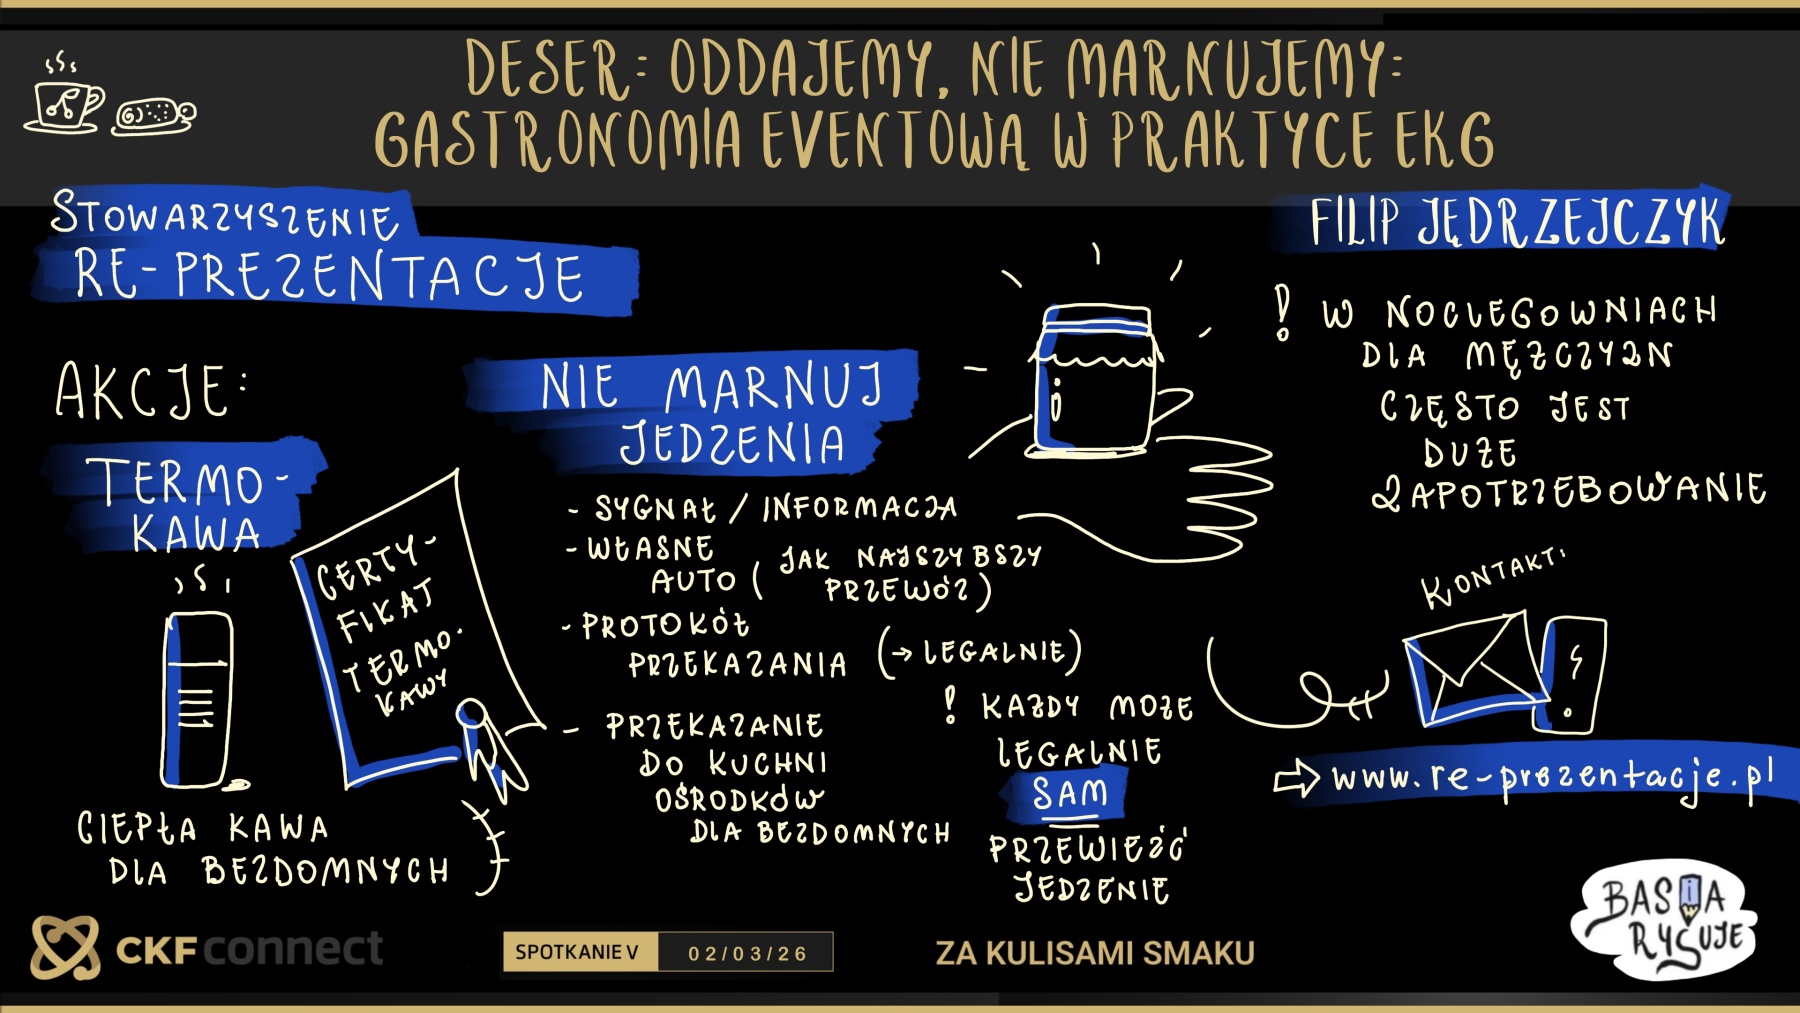 DESER: ODDAJEMY, NIE MARNUJEMY:
GASTRONOMIA EVENTOWĄ W PRAKTYCE EKG
STOWARZYSZENIE
RE-PREZENTACJE
AKCJE:
TERMO-
KAWA
CERTY-
FIKAT
TERMO-
KAWY
CIEPŁA KAWA
DLA BEZDOMNYCH
NIE MARNUJ
JEDZENIA
- SYGNAŁ / INFORMACJA
- WŁASNE
AUTO ( JAK NAJSZYBSZY
PRZEWÓZ)
- PROTOKÓŁ
PRZEKAZANIA (→ LEGALNIE)
- PRZEKAZANIE
DO KUCHNI
OŚRODKÓW
DLA BEZDOMNYCH
! KAŻDY MOŻE
LEGALNIE
SAM
PRZEWIEŹĆ
JEDZENIE
FILIP JĘDRZEJCZYK
! W NOCLEGOWNIACH
DLA MĘŻCZYZN
CZĘSTO JEST
DUŻE
ZAPOTRZEBOWANIE
KONTAKT:
⇨ www.re-prezentacje.pl
CKF connect
SPOTKANIE V 02/03/26
ZA KULISAMI SMAKU
BASIA
RYSUJE